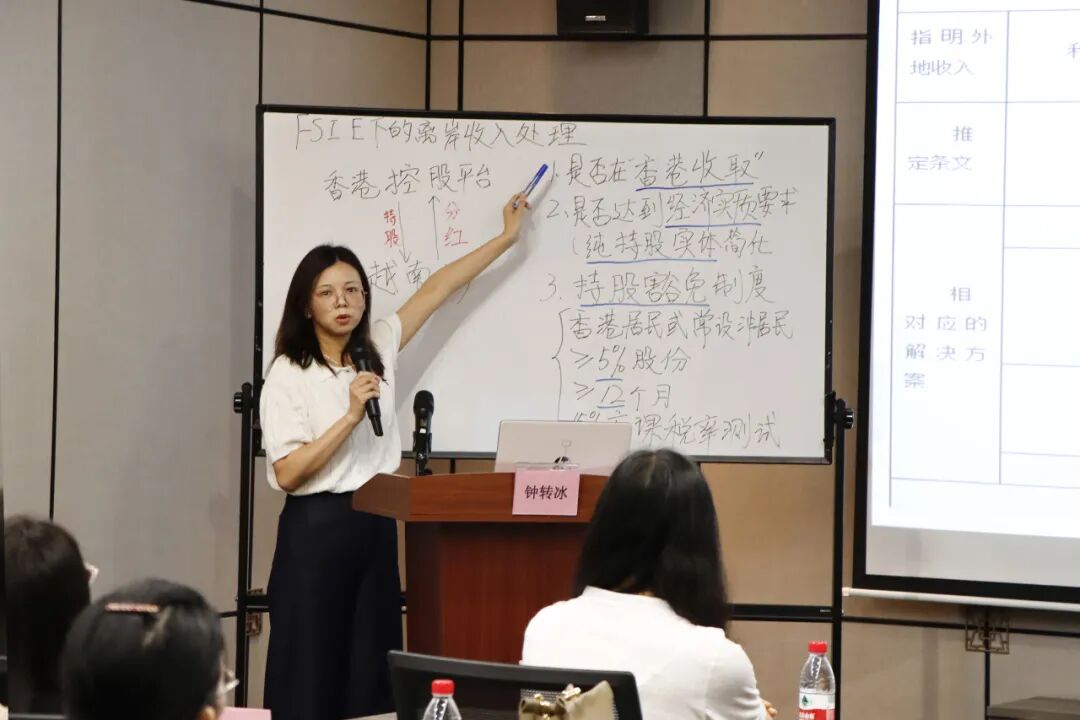 FSIE下的离岸收入处理
香港控股平台
持股
分红
越南
1.是否在"香港收取"
2.是否达到经济实质要求
(纯持股实体简化
3.持股豁免制度
香港居民或常设非居民
≥5%股份
≥12个月
15%
课税率测试
钟转冰
指明外
地收入
推
定条文
相
对应的
解决方
案